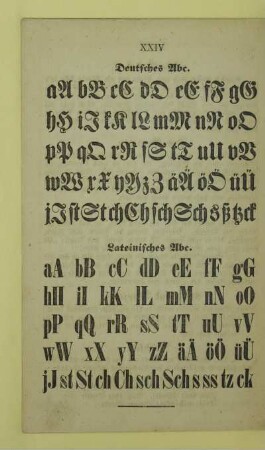 XXIV
Deutsches Abc.
aA bB cC dD eE fF gG
hH iI kK lL mM nN oO
pP qQ rR sS tT uU vV
wW xX yY zZ äÄ öÖ üÜ
jJ st St ch Ch sch Sch ß tz ck
Lateinisches Abc.
aA bB cC dD eE fF gG
hH iI kK lL mM nN oO
pP qQ rR sS tT uU vV
wW xX yY zZ äÄ öÖ üÜ
jJ st St ch Ch sch Sch s ss tz ck